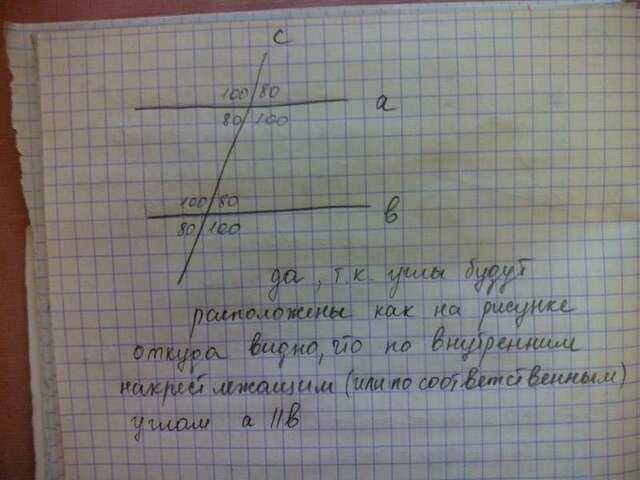 с
100 80
а
80 100
100 80
в
80 100
да, т.к. углы будут
расположены как на рисунке
откуда видно, что по внутренним
накрест лежащим (или по соответственным)
углам а || в